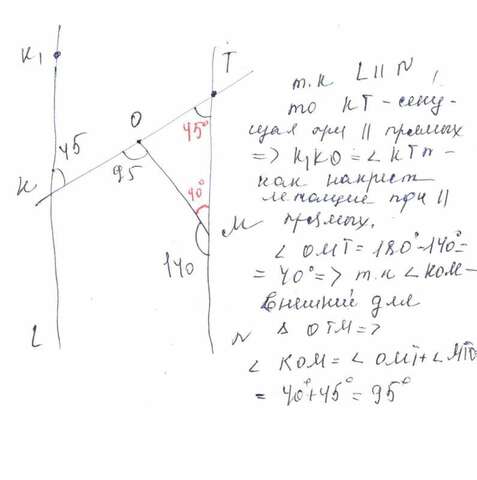 K₁
T
т.к L || N,
то KT - секу-
O
45°
щая при || прямых
45
=> K₁KO = ∠ KTM -
K
95
как накрест
40°
лежащие при ||
M
прямых.
140
∠ OMT = 180° - 140° =
= 40° => т.к ∠ KOM -
внешний для
L
N
Δ OTM =>
∠ KOM = ∠ OMT + ∠ MTO
= 40° + 45° = 95°